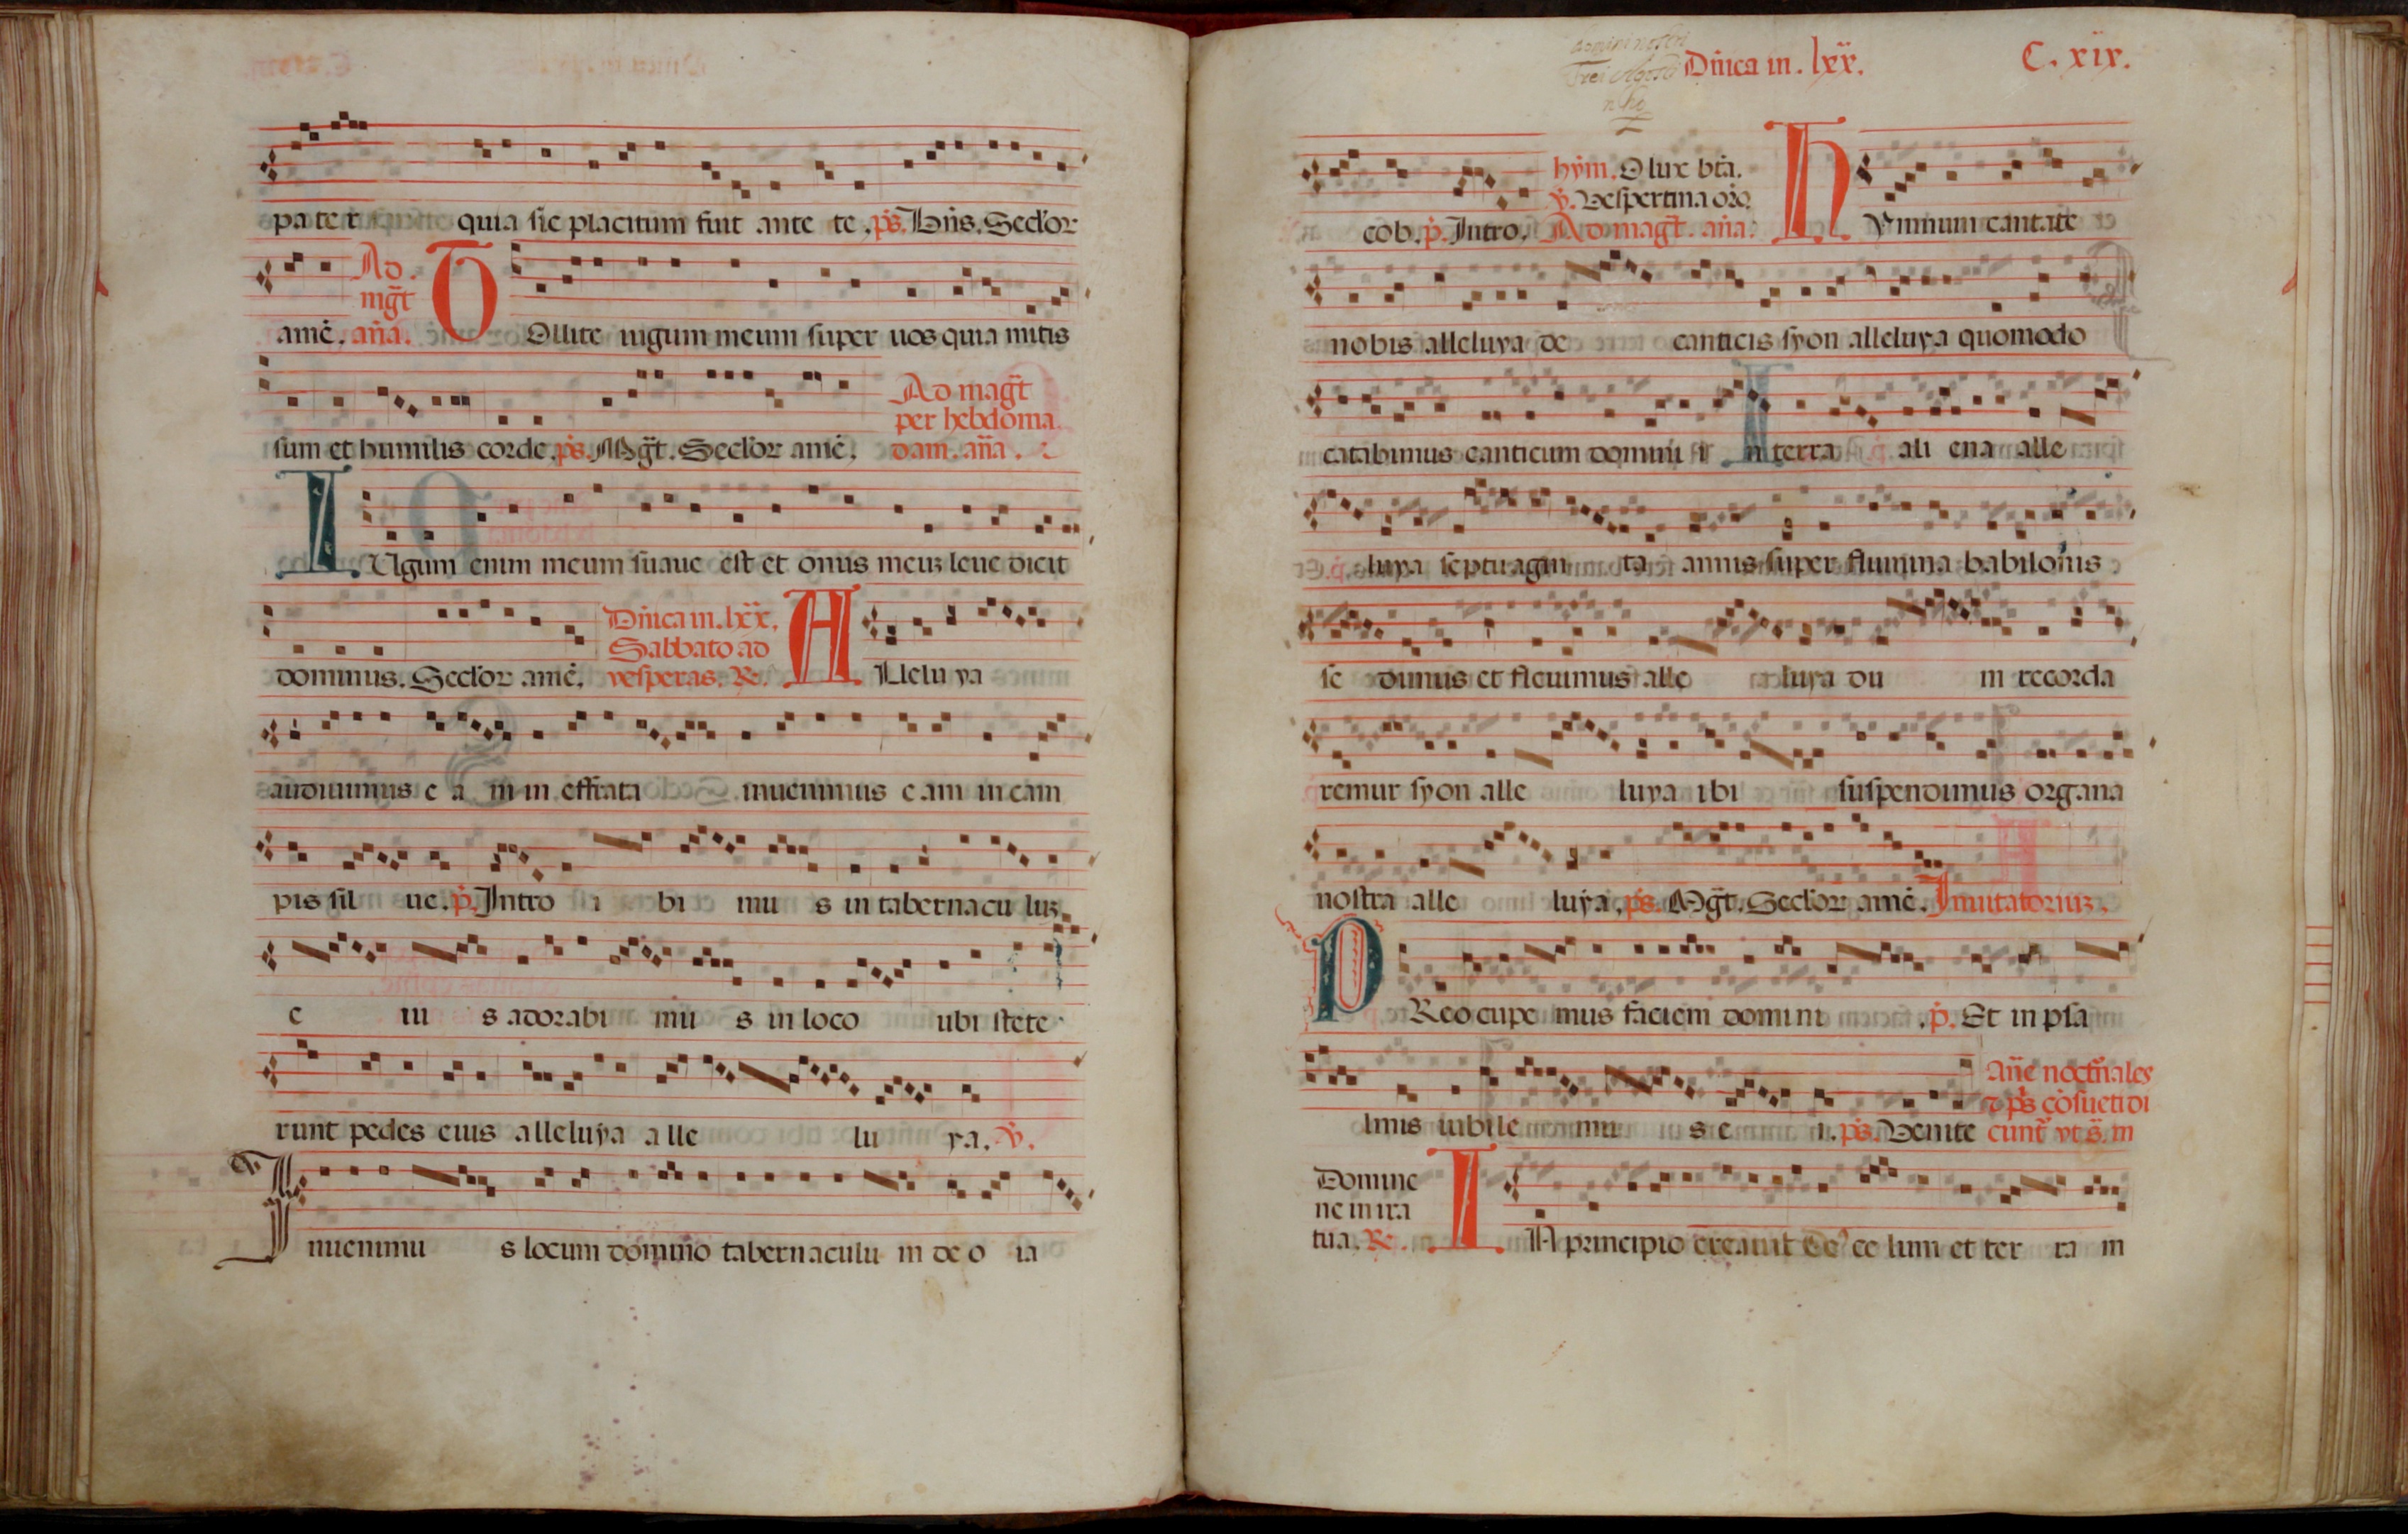 pater quia sic placitum fuit ante te. ps. Bn̄s. Seclor
amē. Ad mḡt an̄a. TOllite iugum meum super uos quia mitis
sum et humilis corde. ps. Mḡt. Seclor amē. Ad magt̄ per hebdoma dam. an̄a.
IUgum enim meum suaue est et onus meuz leue dicit
dominus. Seclor amē. Dn̄ica in. lxx. Sabbato ad vesperas. R. ALleluya
audiuimus e a m in effrata inuenimus eam in cam
pis sil ue. p. Intro i bi mu s in tabernacu luz
e iu s adorabi mu s in loco ubi stete
runt pedes eius alleluya alle lu ya. v.
Inuenimu s locum domino tabernaculu m deo ia
Dn̄ica in. lxx. C. xix.
hym. O lux bt̄a.
v. Vespertina oro.
cob. p. Intro. Ad magt̄. an̄a. HYmnum cantate
nobis alleluya de canticis syon alleluya quomodo
catabimus canticum domini i n terra ali ena alle
luya septuagin ta annis super flumina babilonis
se dimus et fleuimus alle luya du m recorda
remur syon alle luya ibi suspendimus organa
nostra alle luya. ps. Mḡt. Seclor amē. Inuitatoriuz.
PReocupe mus faciem domini . p. Et in psa
lmis iubile mu s e i. ps. Venite
An̄e noct̄nales
ꝛ ps cōsueti di
cunt̄ vt s̄. in
Domine
ne in ira
tua. R. IN principio creauit de' ce lum et ter ra m